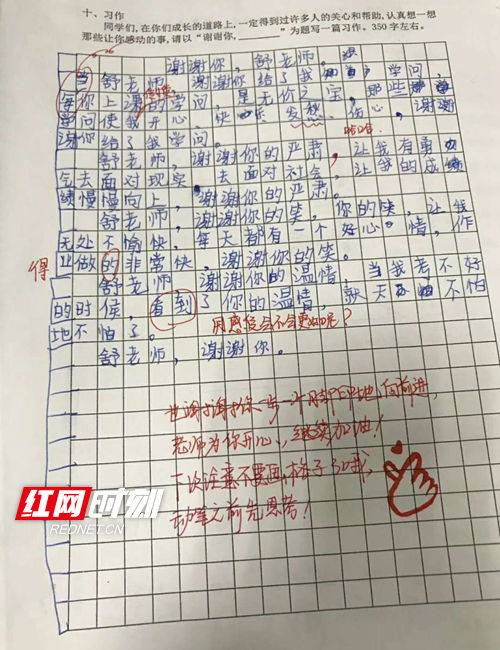 十、习作
同学们,在你们成长的道路上,一定得到过许多人的关心和帮助,认真想一想
那些让你感动的事,请以“谢谢你,________”为题写一篇习作。350字左右。
谢谢你,舒老师。
舒老师,谢谢你给了我学问,
每你上课的学问,是无价之宝,那些
学问使我开心,快乐,发愁,伤心,谢谢
谢你给了我学问。
哈哈
舒老师,谢谢你的严肃,让我有勇
气去面对现实,去面对社会,让我的成
绩慢慢向上,谢谢你的严肃。
舒老师,谢谢你的笑,你的笑,让我
无处不愉快,每天都有一个好心情,作
得
让做的非常快,谢谢你的笑。
舒老师,谢谢你的温情,当我考不好
的时候,看到了你的温情,就天不怕
地不怕了。
用感受会不会更好呢?
舒老师,谢谢你。
也谢谢你一步一个脚印地向前进,
老师为你开心,继续加油!
下次注意不要画格子了哦,
动笔之前先思考!
红网时刻
REDNET.CN